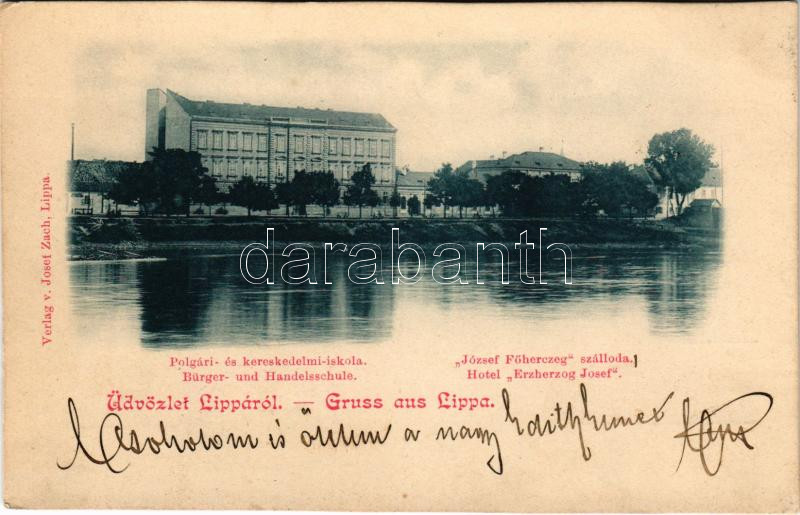 Verlag v. Josef Zach, Lippa.
darabanth
Polgári- és kereskedelmi-iskola.
Bürger- und Handelsschule.
„József Főherczeg" szálloda.
Hotel „Erzherzog Josef".
Üdvözlet Lippáról. — Gruss aus Lippa.
Csókolom is a nagy